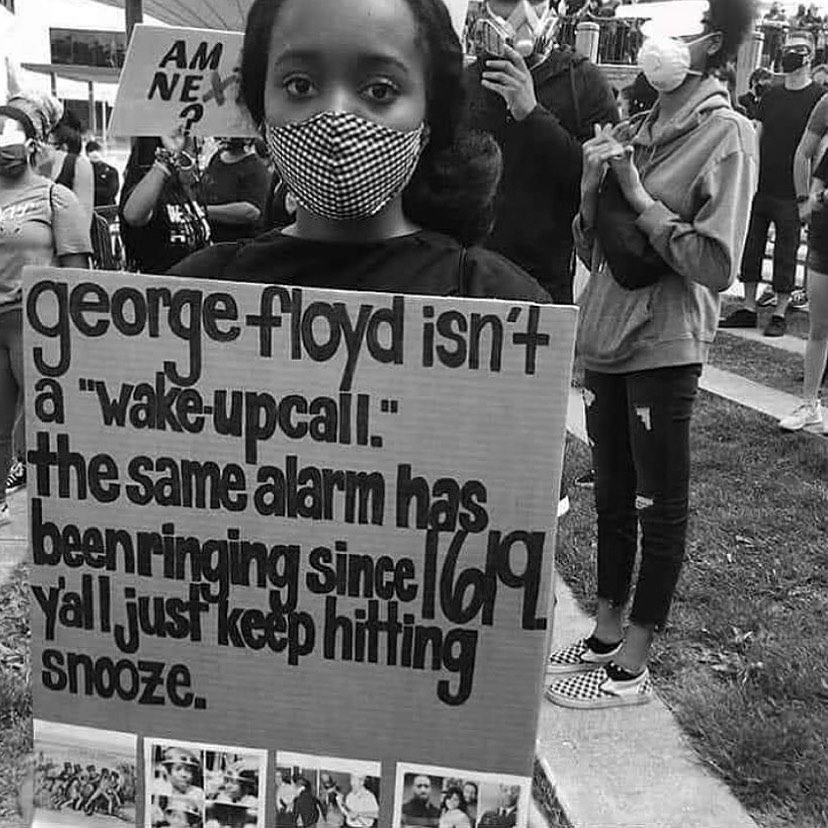 AM
NEX
?
george floyd isn't
a "wake-up call."
the same alarm has
been ringing since 1619.
y'all just keep hitting
snooze.